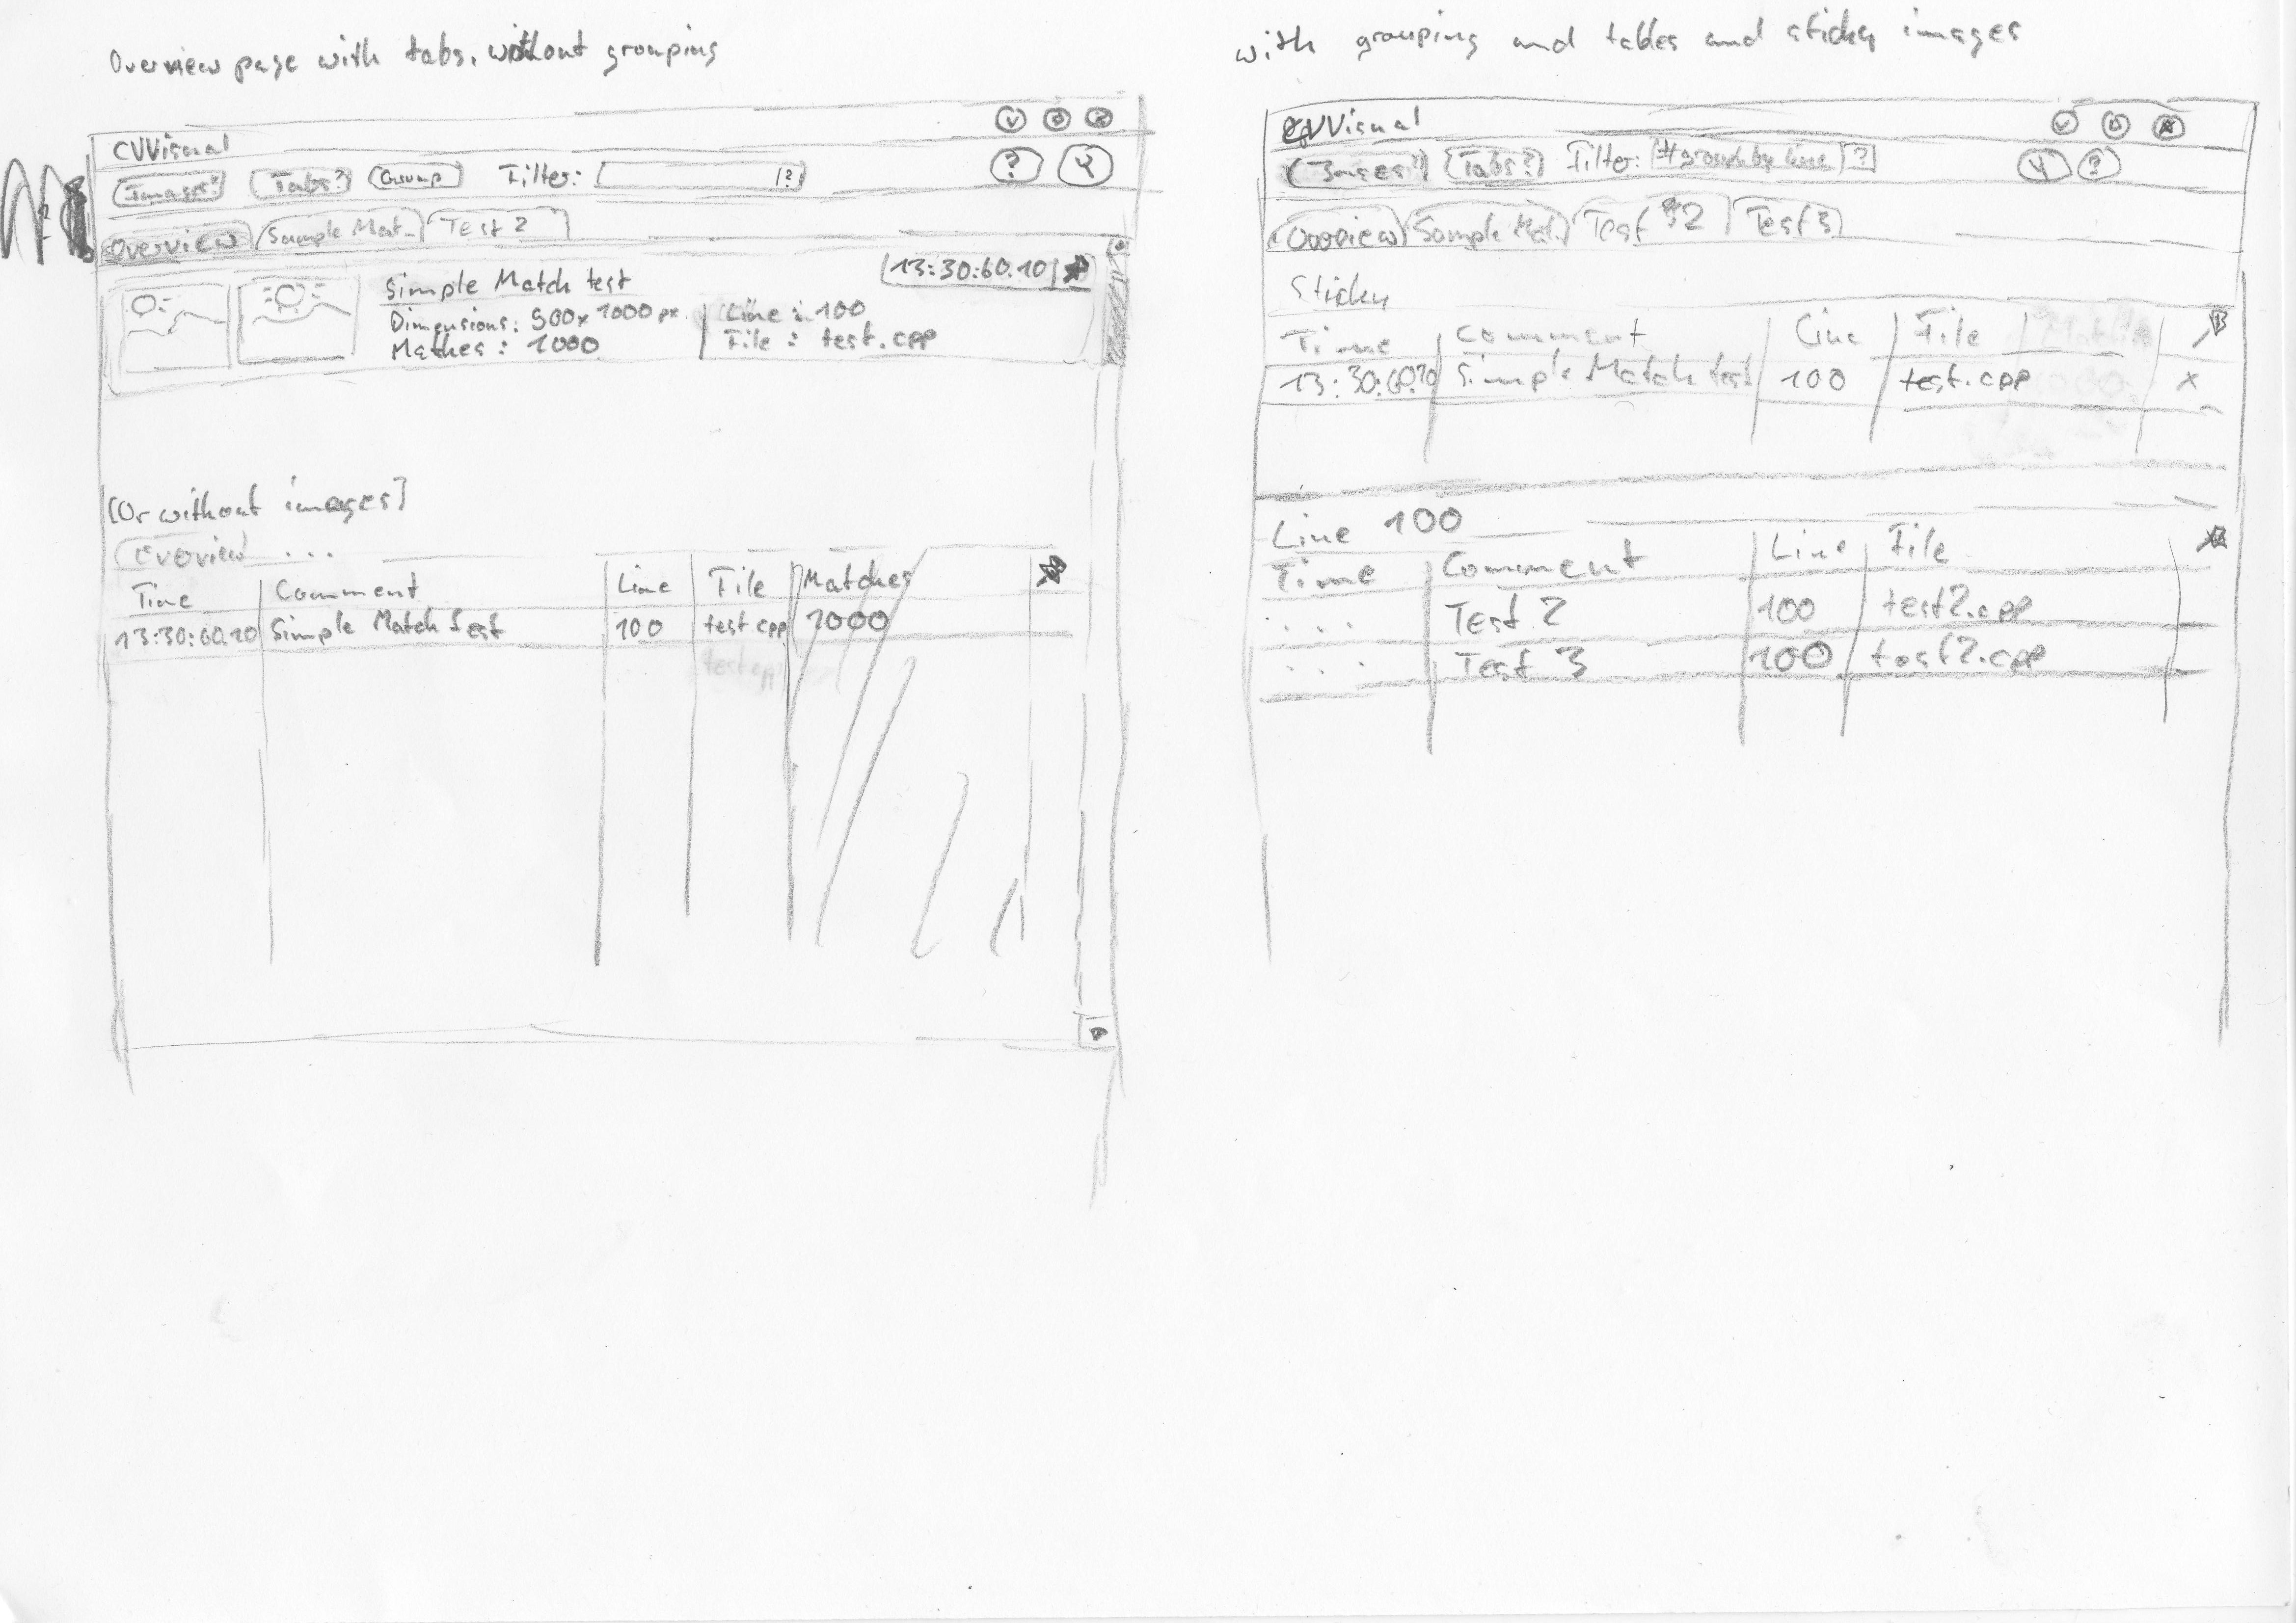 Overview page with tabs, without grouping
CVVisual
Images? Tabs? Group Filter: ?
?
Overview Sample Mat... Test 2
Simple Match test 13:30:60.10
Dimensions: 500x1000 px Line: 100
Mathes: 1000 File: test.cpp
[Or without images]
Overview ...
Time Comment Line File Matches
13:30:60.10 Simple Match test 100 test.cpp 1000
test.cpp
with grouping and tables and sticky images
CVVisual
Images? Tabs? Filter: #group by line ?
?
Overview Sample Mat. Test 2 Test 3
Sticky
Time Comment Line File
13:30:60.10 Simple Match test 100 test.cpp x
Line 100
Time Comment Line File
... Test 2 100 test2.cpp
... Test 3 100 test2.cpp